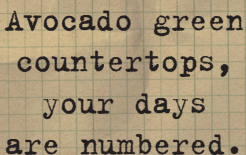 Avocado green
countertops,
your days
are numbered.